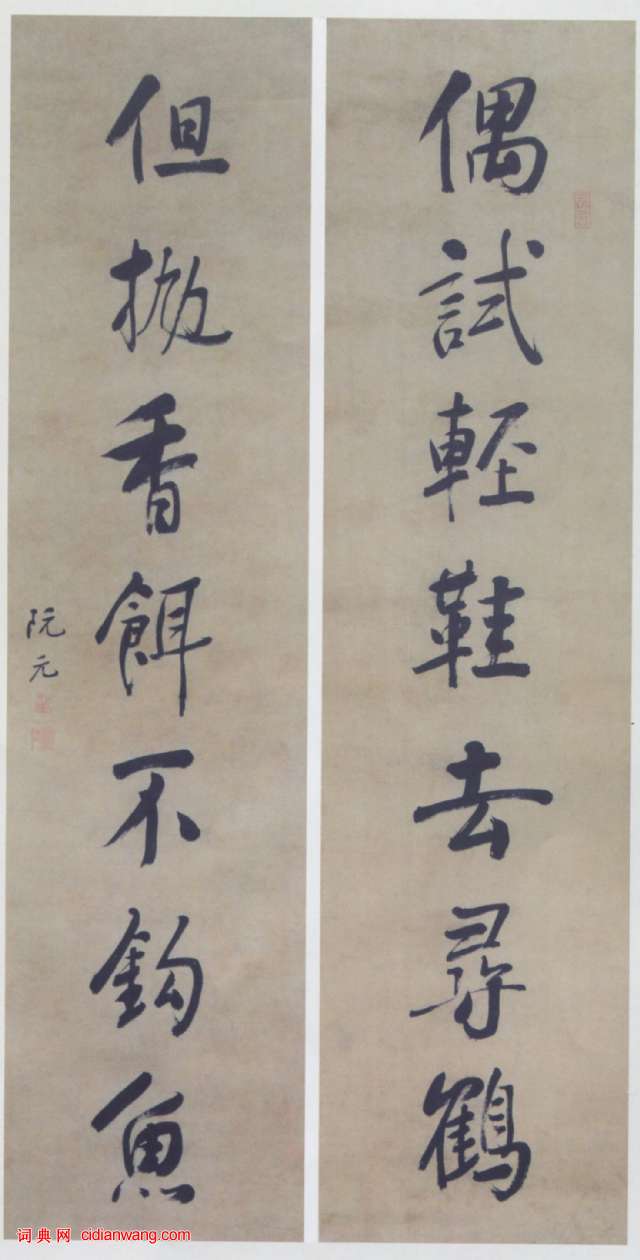 偶試輕鞋去尋鶴
但撒香餌不鈎魚
阮元
词典网 cidianwang.com